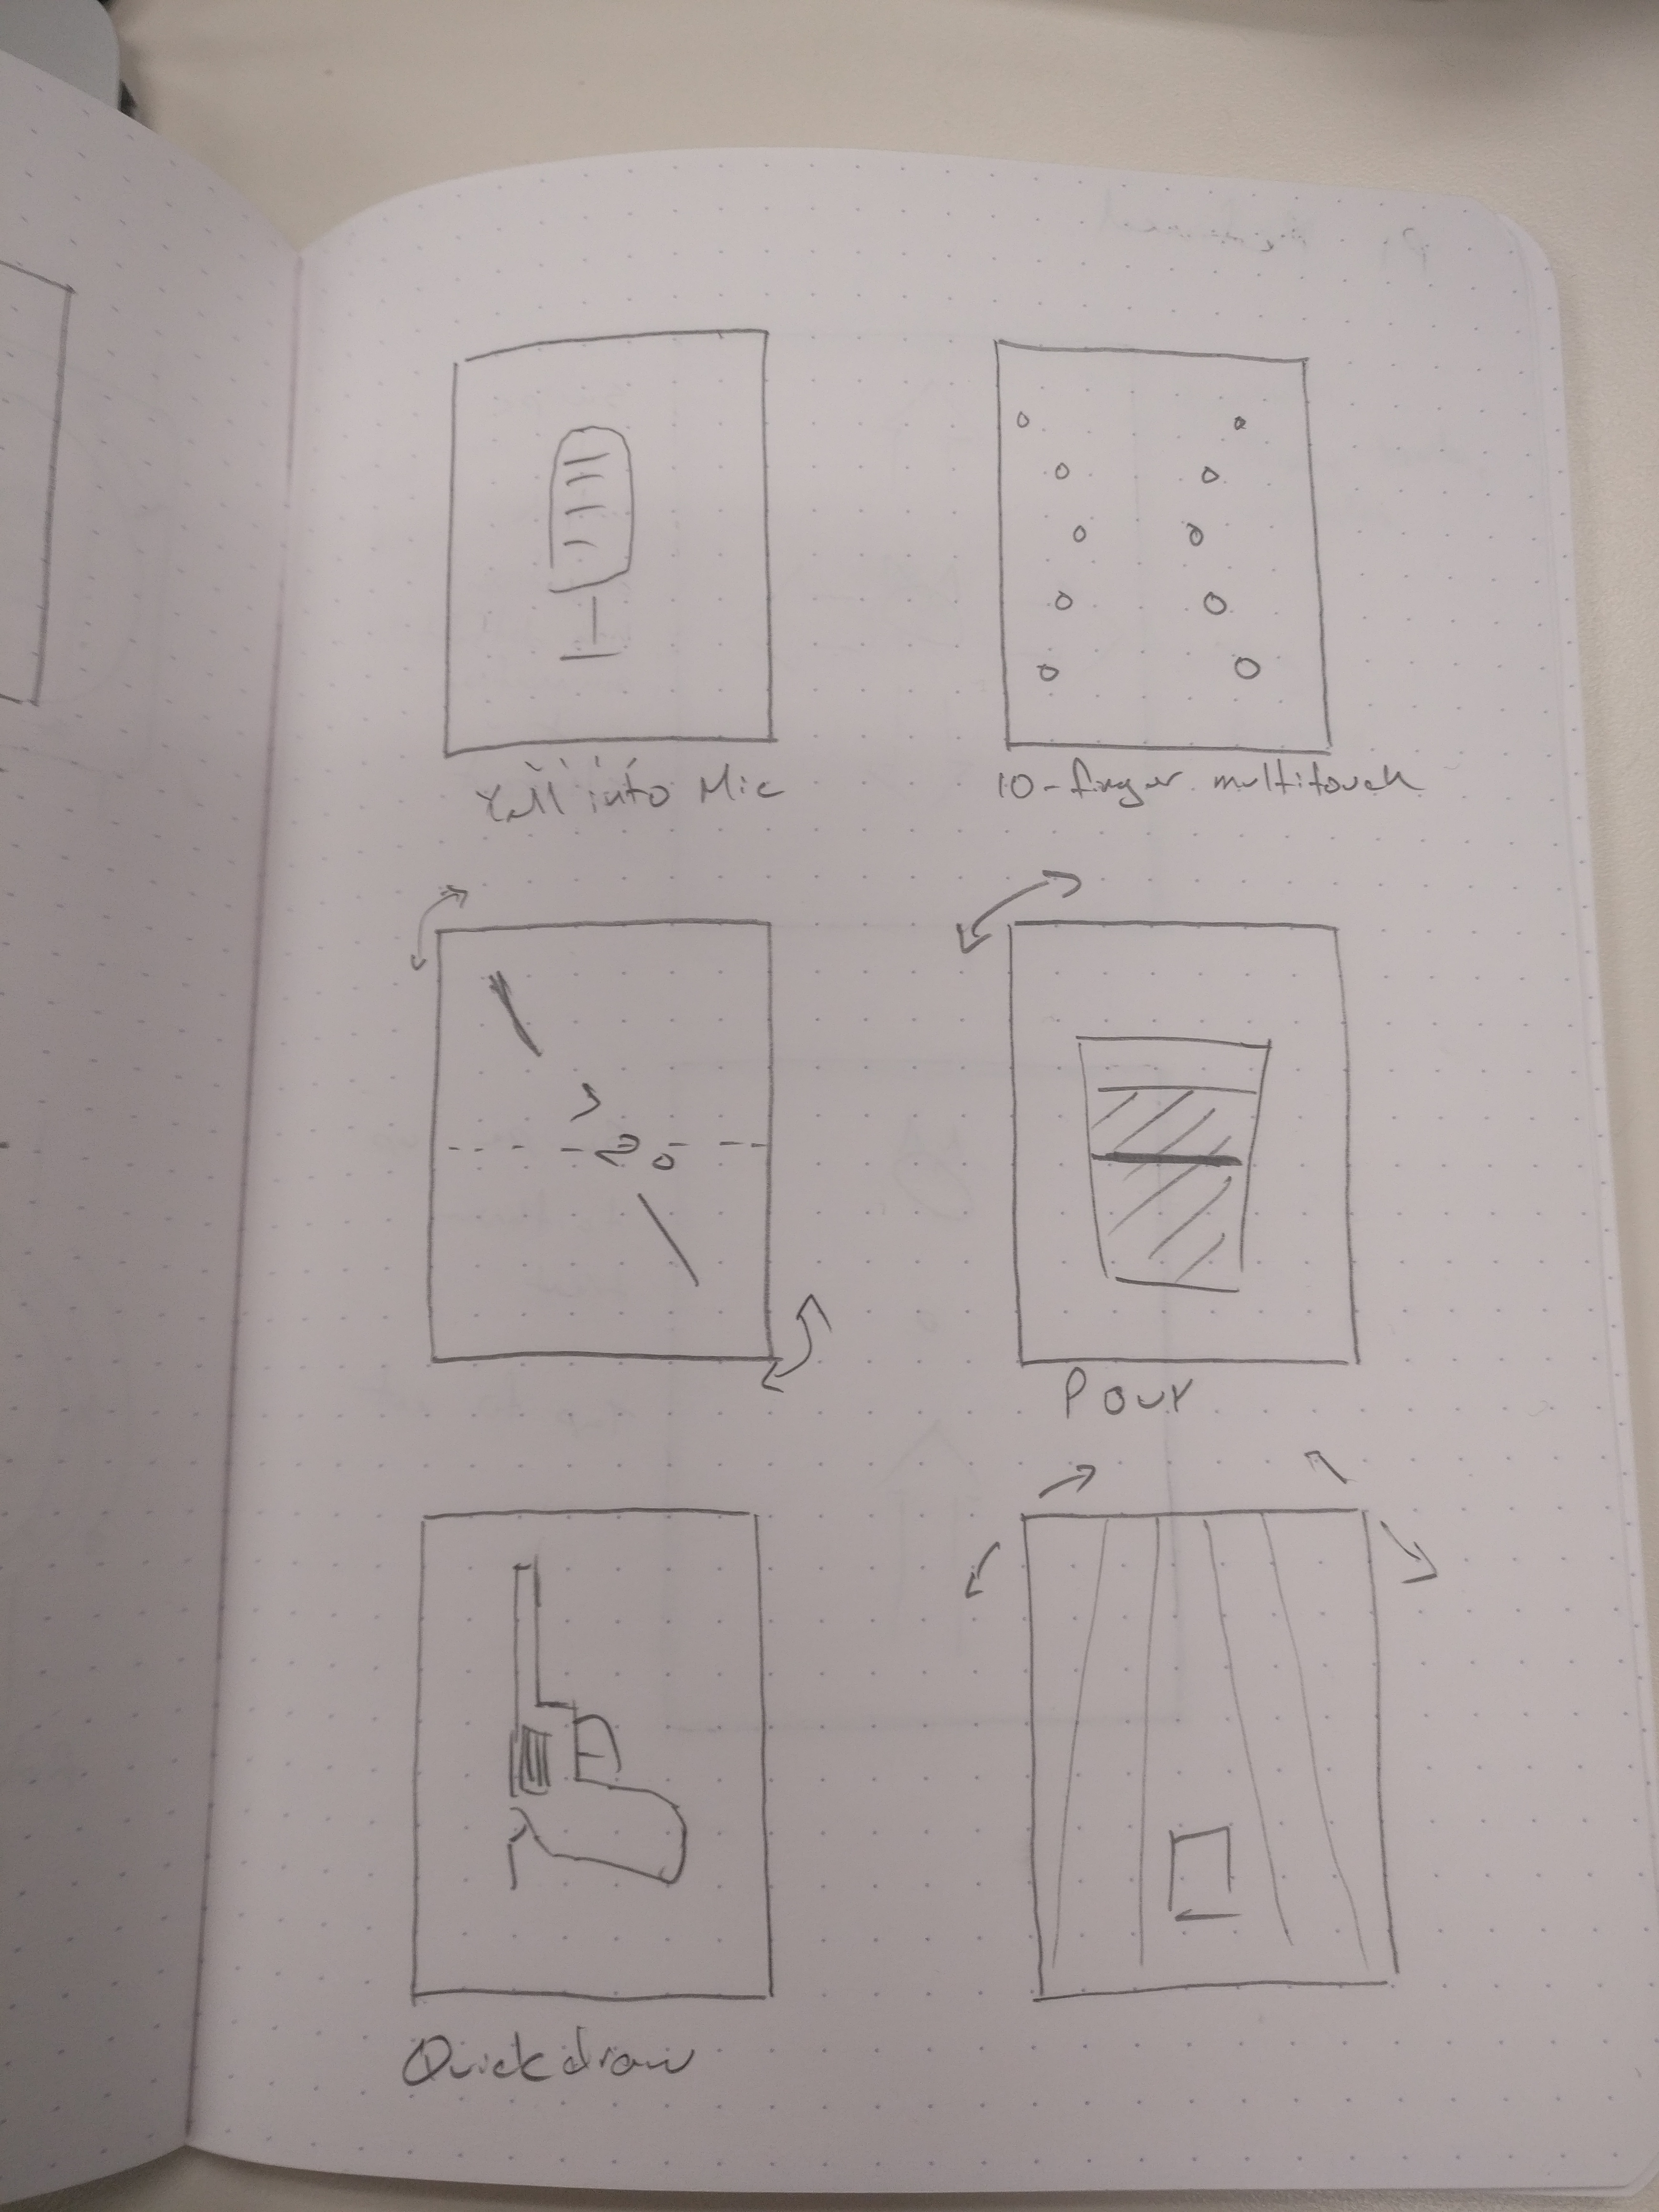 Yell into Mic
10-finger multitouch
Pour
Quickdraw